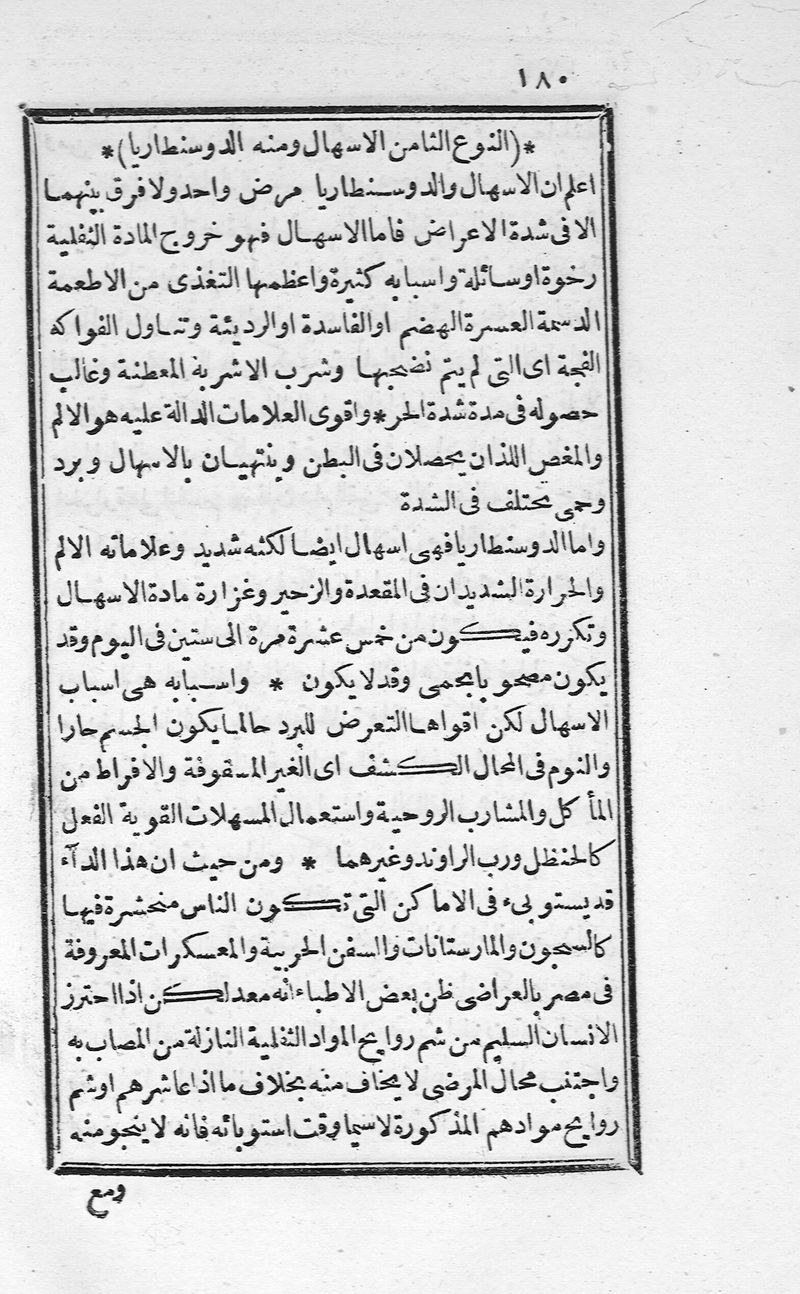 ١٨٠
*(النوع الثامن الاسهال ومنه الدوسنطاريا)*
اعلم ان الاسهال والدوسنطاريا مرض واحد ولا فرق بينهما
الا فى شدة الاعراض فاما الاسهال فهو خروج المادة الثفلية
رخوة او سائلة واسبابه كثيرة واعظمها التغذى من الاطعمة
الدسمة العسرة الهضم او الفاسدة او الرديئة وتناول الفواكه
الفجة اى التى لم يتم نضجها وشرب الاشربة المعطنة وغالب
حصوله فى مدة شدة الحر * واقوى العلامات الدالة عليه هو الالم
والمغص اللذان يحصلان فى البطن وينتهيان بالاسهال وبرد
وحمى يختلف فى الشدة
واما الدوسنطاريا فهى اسهال ايضا لكنه شديد وعلاماته الالم
والحرارة الشديدان فى المقعدة والزحير وغزارة مادة الاسهال
وتكرره فيكون من خمس عشرة مرة الى ستين فى اليوم وقد
يكون مصحوبا بحمى وقد لا يكون * واسبابه هى اسباب
الاسهال لكن اقواها التعرض للبرد حالما يكون الجسم حارا
والنوم فى المحال الكشف اى الغير المسقوفة والافراط من
المأكل والمشارب الروحية واستعمال المسهلات القوية الفعل
كالحنظل ورب الراوند وغيرهما * ومن حيث ان هذا الدآء
قد يستوبىء فى الاماكن التى تكون الناس منحشرة فيها
كالسجون والمارستانات والسفن الحربية والمعسكرات المعروفة
فى مصر بالعراضى ظن بعض الاطباء انه معد لكن اذا احترز
الانسان السليم من شم روايح المواد الثفلية النازلة من المصاب به
واجتنب محال المرضى لا يخاف منه بخلاف ما اذا عاشرهم او شم
روايح موادهم المذكورة لا سيما وقت استوبائه فانه لا ينجو منه
ومع